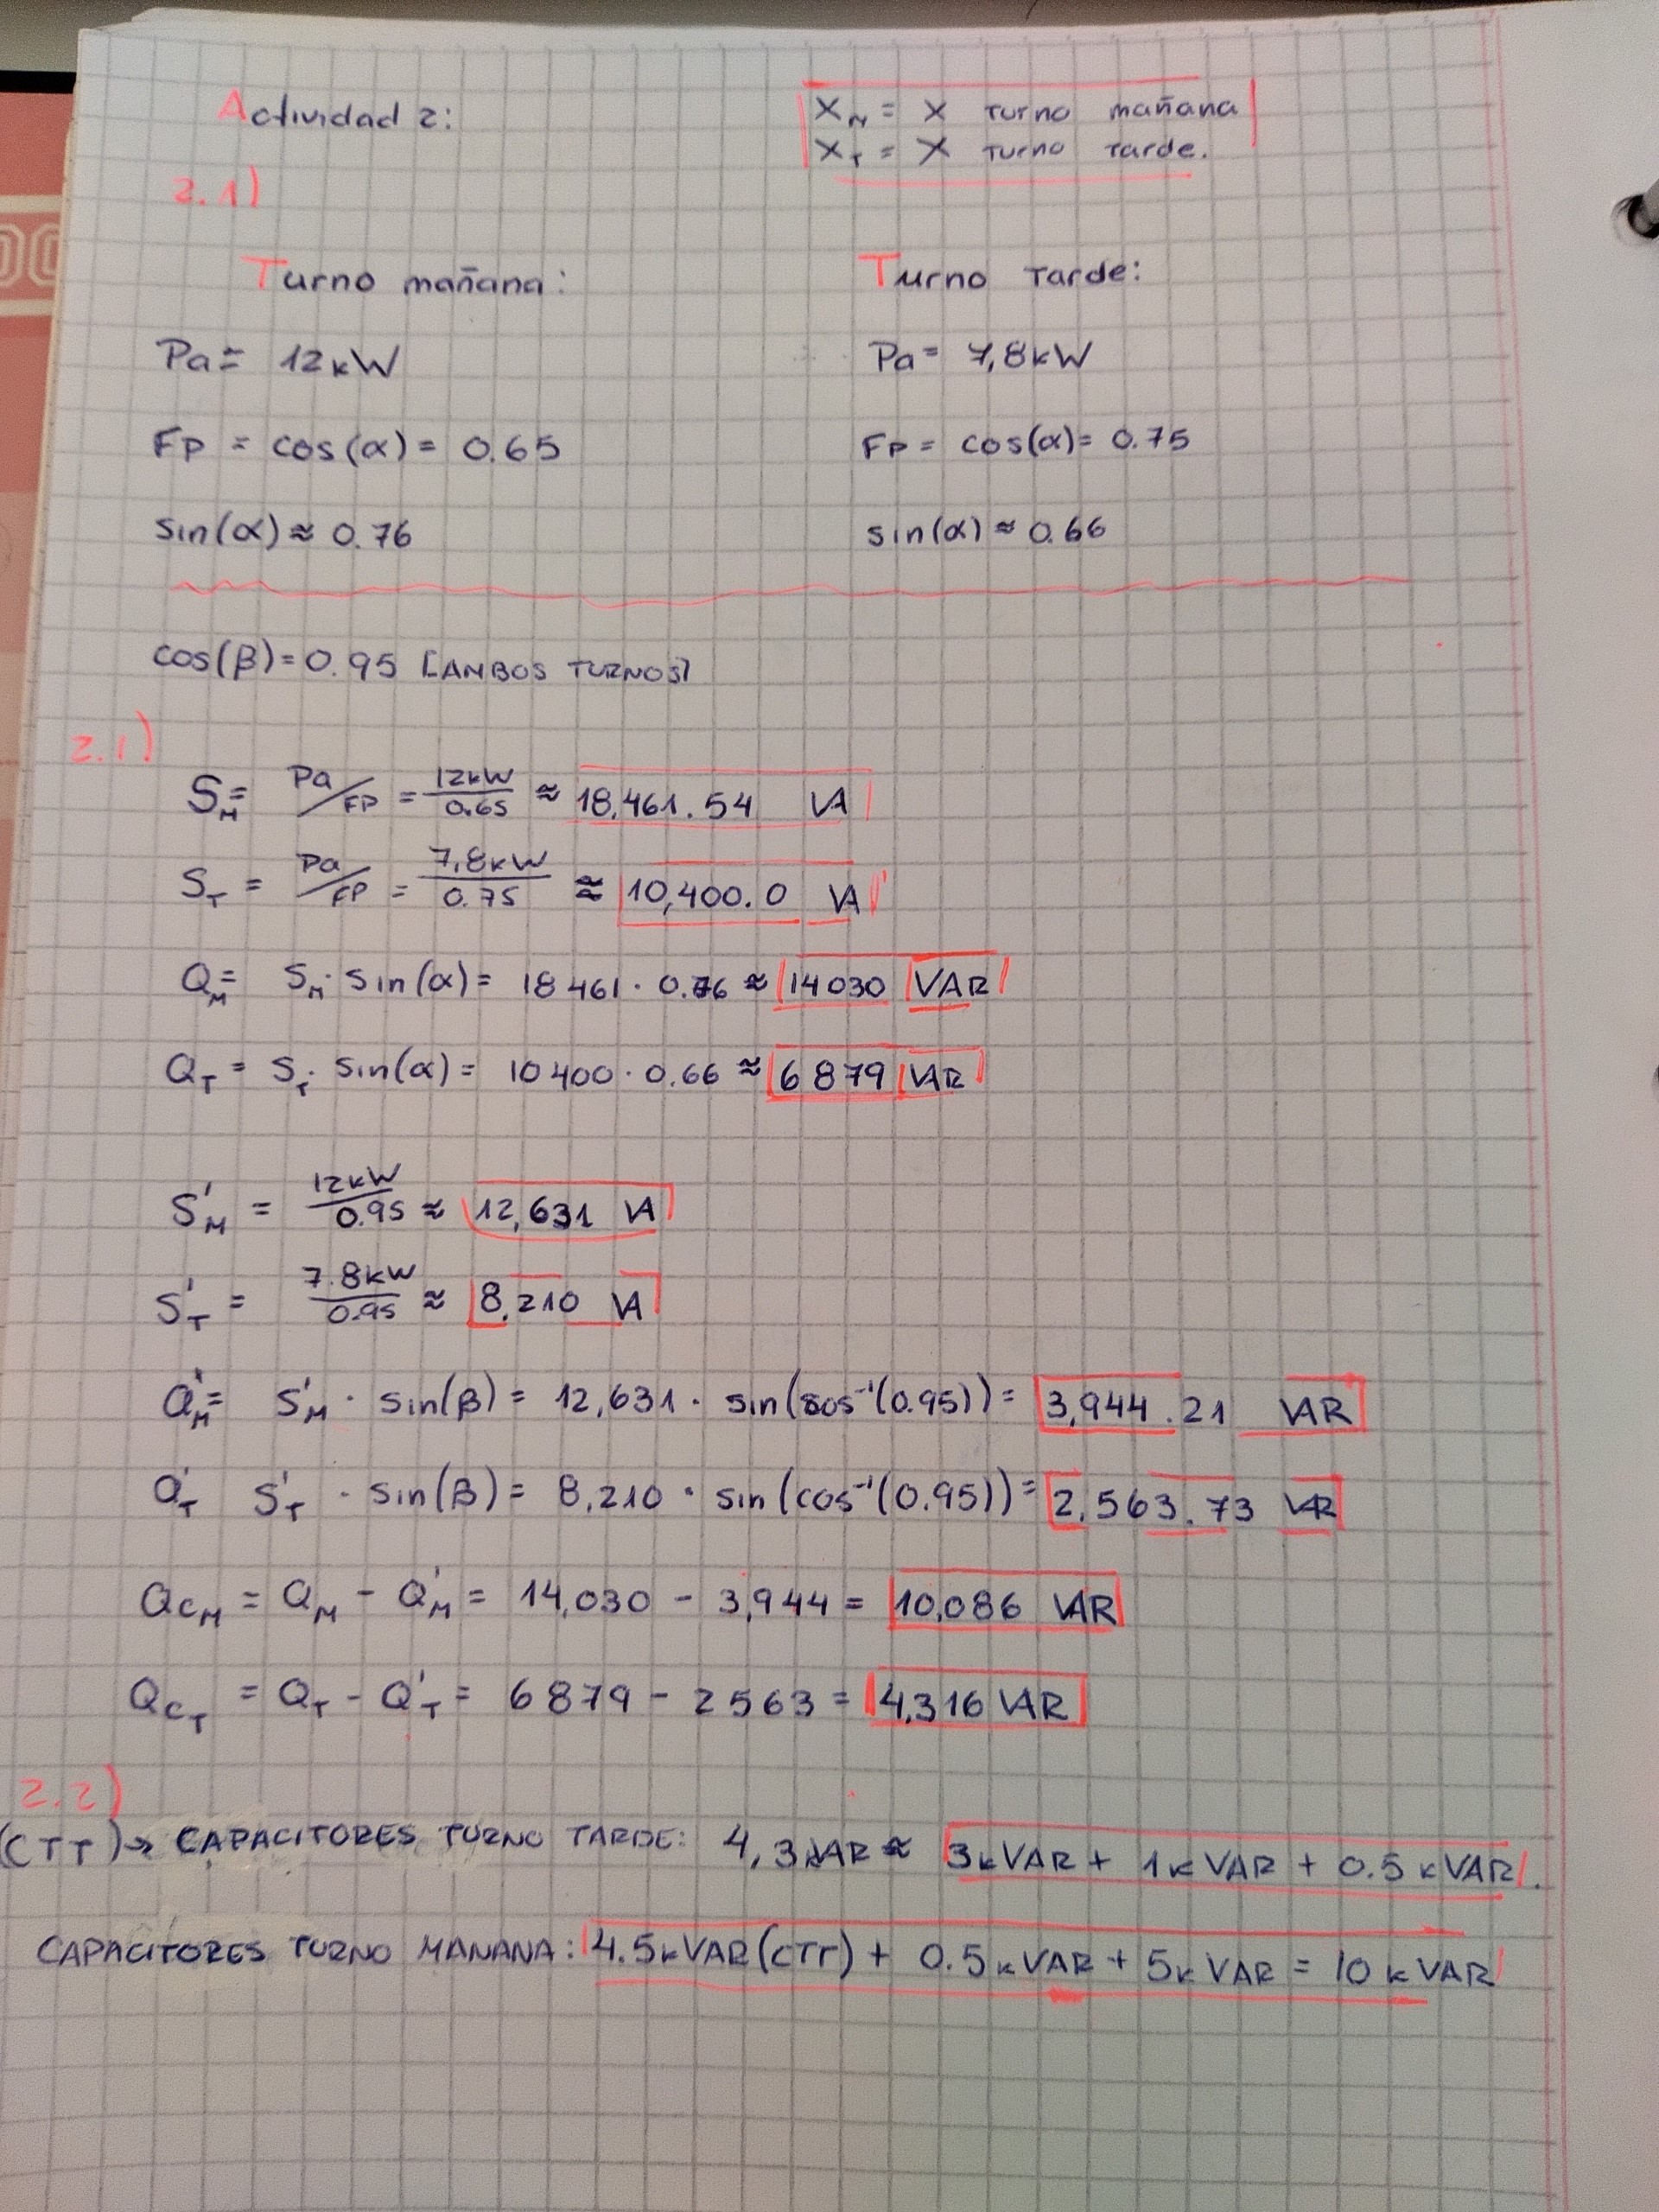 Actividad 2:
X_M = X turno mañana
X_T = X turno tarde.
2.1)
Turno mañana:
Turno tarde:
Pa = 12kW
Pa = 7,8kW
FP = cos(α) = 0.65
FP = cos(α) = 0.75
sin(α) ≈ 0.76
sin(α) ≈ 0.66
cos(β) = 0.95 [AMBOS TURNOS]
2.1)
S_M = Pa/FP = 12kW/0.65 ≈ 18,461.54 VA
S_T = Pa/FP = 7,8kW/0.75 ≈ 10,400.0 VA
Q_M = S_M · sin(α) = 18 461 · 0.76 ≈ 14 030 VAR
Q_T = S_T · sin(α) = 10 400 · 0.66 ≈ 6 879 VAR
S'_M = 12kW/0.95 ≈ 12,631 VA
S'_T = 7.8kW/0.95 ≈ 8,210 VA
Q'_M = S'_M · sin(β) = 12,631 · sin(cos⁻¹(0.95)) = 3,944.21 VAR
Q'_T S'_T · sin(β) = 8,210 · sin(cos⁻¹(0.95)) = 2,563.73 VAR
Qc_M = Q_M - Q'_M = 14,030 - 3,944 = 10,086 VAR
Qc_T = Q_T - Q'_T = 6 879 - 2 563 = 4,316 VAR
2.2)
(CTT) → CAPACITORES TURNO TARDE: 4,3kVAR ≈ 3kVAR + 1kVAR + 0.5kVAR.
CAPACITORES TURNO MANANA: 4.5kVAR(CTT) + 0.5kVAR + 5kVAR = 10kVAR